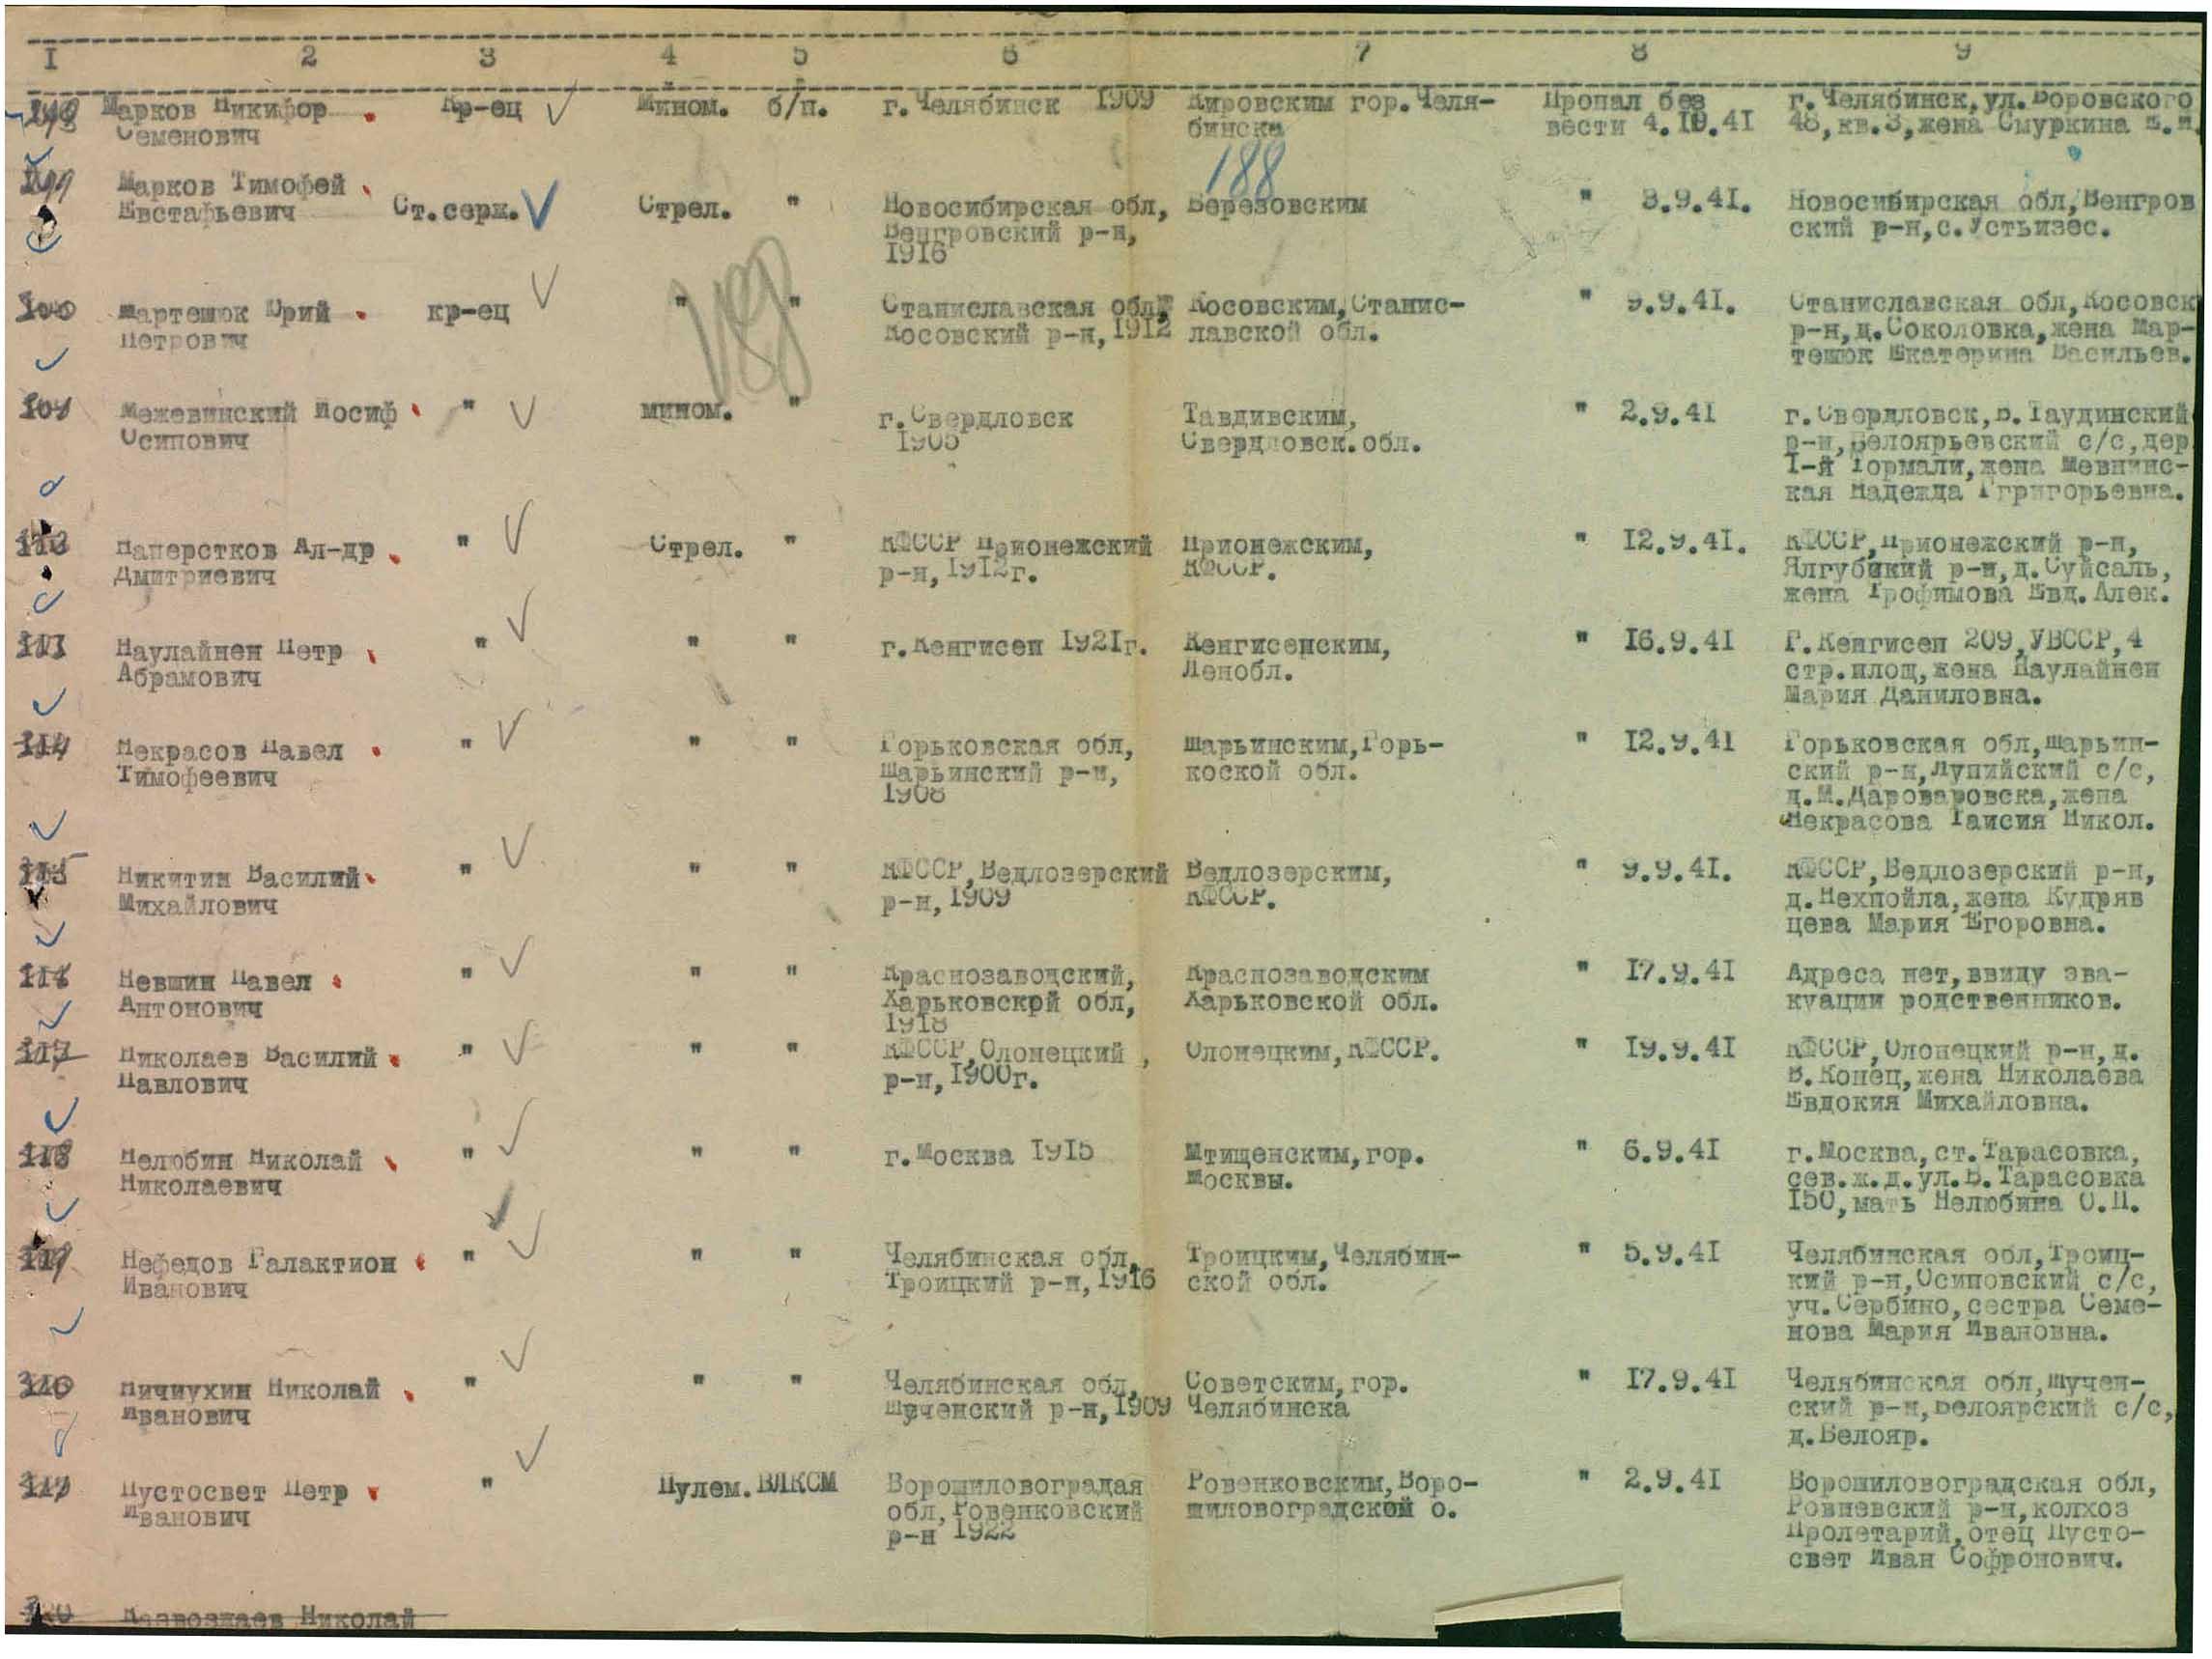 I 2 3 4 5 6 7 8 9
Марков Никифор Кр-ец Мином. б/п. г.Челябинск 1909 Кировским гор.Челя- Пропал без г.Челябинск,ул.Боровского
Семенович бинска вести 4.10.41 48,кв.3,жена Смуркина
188
Марков Тимофей
Евстафьевич Ст.серж. Стрел. " Новосибирская обл, Березовским " 3.9.41. Новосибирская обл,Венгров
Венгровский р-н, ский р-н,с.Устьизес.
1916
Мартешюк Юрий кр-ец " " Станиславская обл, Косовским,Станис- " 9.9.41. Станиславская обл,Косовск
Петрович Косовский р-н,1912 лавской обл. р-н,д.Соколовка,жена Мар-
тешюк Екатерина Васильев.
188
Межевинский Иосиф " мином. " г.Свердловск Тавдивским, " 2.9.41 г.Свердловск,В.Таудинский
Осипович 1905 Свердловск.обл. р-н,Белоярьевский с/с,дер
I-й Тормали,жена Мевнинс-
кая Надежда Ггригорьевна.
Наперстков Ал-др " Стрел. " КФССР Прионежский Прионежским, " 12.9.41. КФССР,Прионежский р-н,
Дмитриевич р-н,1912г. КФССР. Ялгубикий р-н,д.Суйсаль,
жена Трофимова Евд.Алек.
Наулайнен Петр " " " г.Кенгисеп 1921г. Кенгисепским, " 16.9.41 Г.Кенгисеп 209,УВССР,4
Абрамович Ленобл. стр.площ,жена Наулайнен
Мария Даниловна.
114 Некрасов Павел " " " Горьковская обл, Шарьинским,Горь- " 12.9.41 Горьковская обл,Шарьин-
Тимофеевич Шарьинский р-н, коской обл. ский р-н,Лупийский с/с,
1908 д.М.Дароваровска,жена
Некрасова Таисия Никол.
115 Никитин Василий " " " КФССР,Ведлозерский Ведлозерским, " 9.9.41. КФССР,Ведлозерский р-н,
Михайлович р-н,1909 КФССР. д.Нехпойла,жена Кудряв
цева Мария Егоровна.
Невшин Павел " " " Краснозаводский, Краснозаводским " 17.9.41 Адреса нет,ввиду эва-
Антонович Харьковской обл, Харьковской обл. куации родственников.
1918
117 Николаев Василий " " " КФССР,Олонецкий , Олонецким,КФССР. " 19.9.41 КФССР,Олонецкий р-н,д.
Павлович р-н,1900г. В.Конец,жена Николаева
Евдокия Михайловна.
118 Нелюбин Николай " " " г.Москва 1915 Мтищенским,гор. " 6.9.41 г.Москва,ст.Тарасовка,
Николаевич Москвы. сев.ж.д.ул.Б.Тарасовка
150,мать Нелюбина О.П.
119 Нефедов Галактион " " " Челябинская обл, Троицким,Челябин- " 5.9.41 Челябинская обл,Троиц-
Иванович Троицкий р-н,1916 ской обл. кий р-н,Осиповский с/с,
уч.Сербино,сестра Семе-
нова Мария Ивановна.
Ничиухин Николай " " " Челябинская обл, Советским,гор. " 17.9.41 Челябинская обл,Шучен-
Иванович Шученский р-н,1909 Челябинска ский р-н,Белоярский с/с,
д.Белояр.
Пустосвет Петр " Пулем. ВЛКСМ Ворошиловоградая Ровенковским,Воро- " 2.9.41 Ворошиловоградская обл,
Иванович обл,Ровенковский шиловоградской о. Ровневский р-н,колхоз
р-н 1922 Пролетарий,отец Пусто-
свет Иван Софронович.
Николай